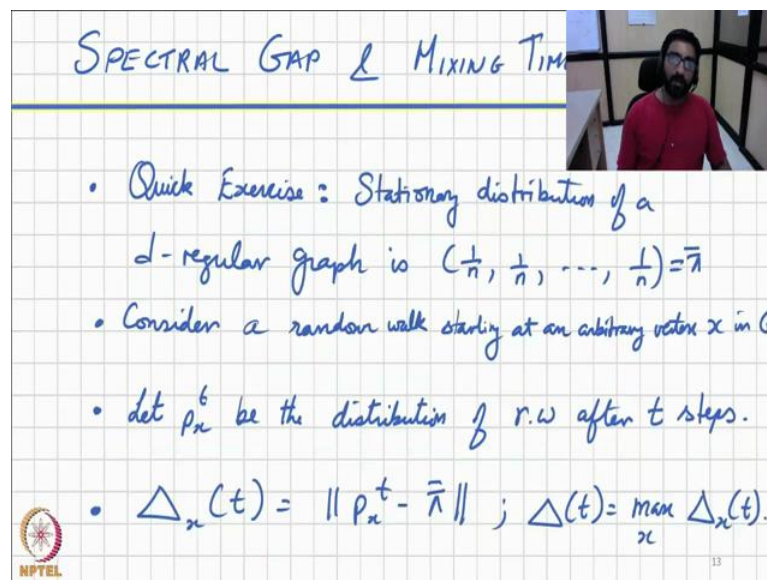 SPECTRAL GAP & MIXING TIM
• Quick Exercise: Stationary distribution of a
d-regular graph is (1/n, 1/n, ..., 1/n) = π̄
• Consider a random walk starting at an arbitrary vertex x in G
• Let pₓᵗ be the distribution of r.w after t steps.
• Δₓ(t) = || pₓᵗ - π̄ || ; Δ(t) = max Δₓ(t).
x
NPTEL
13